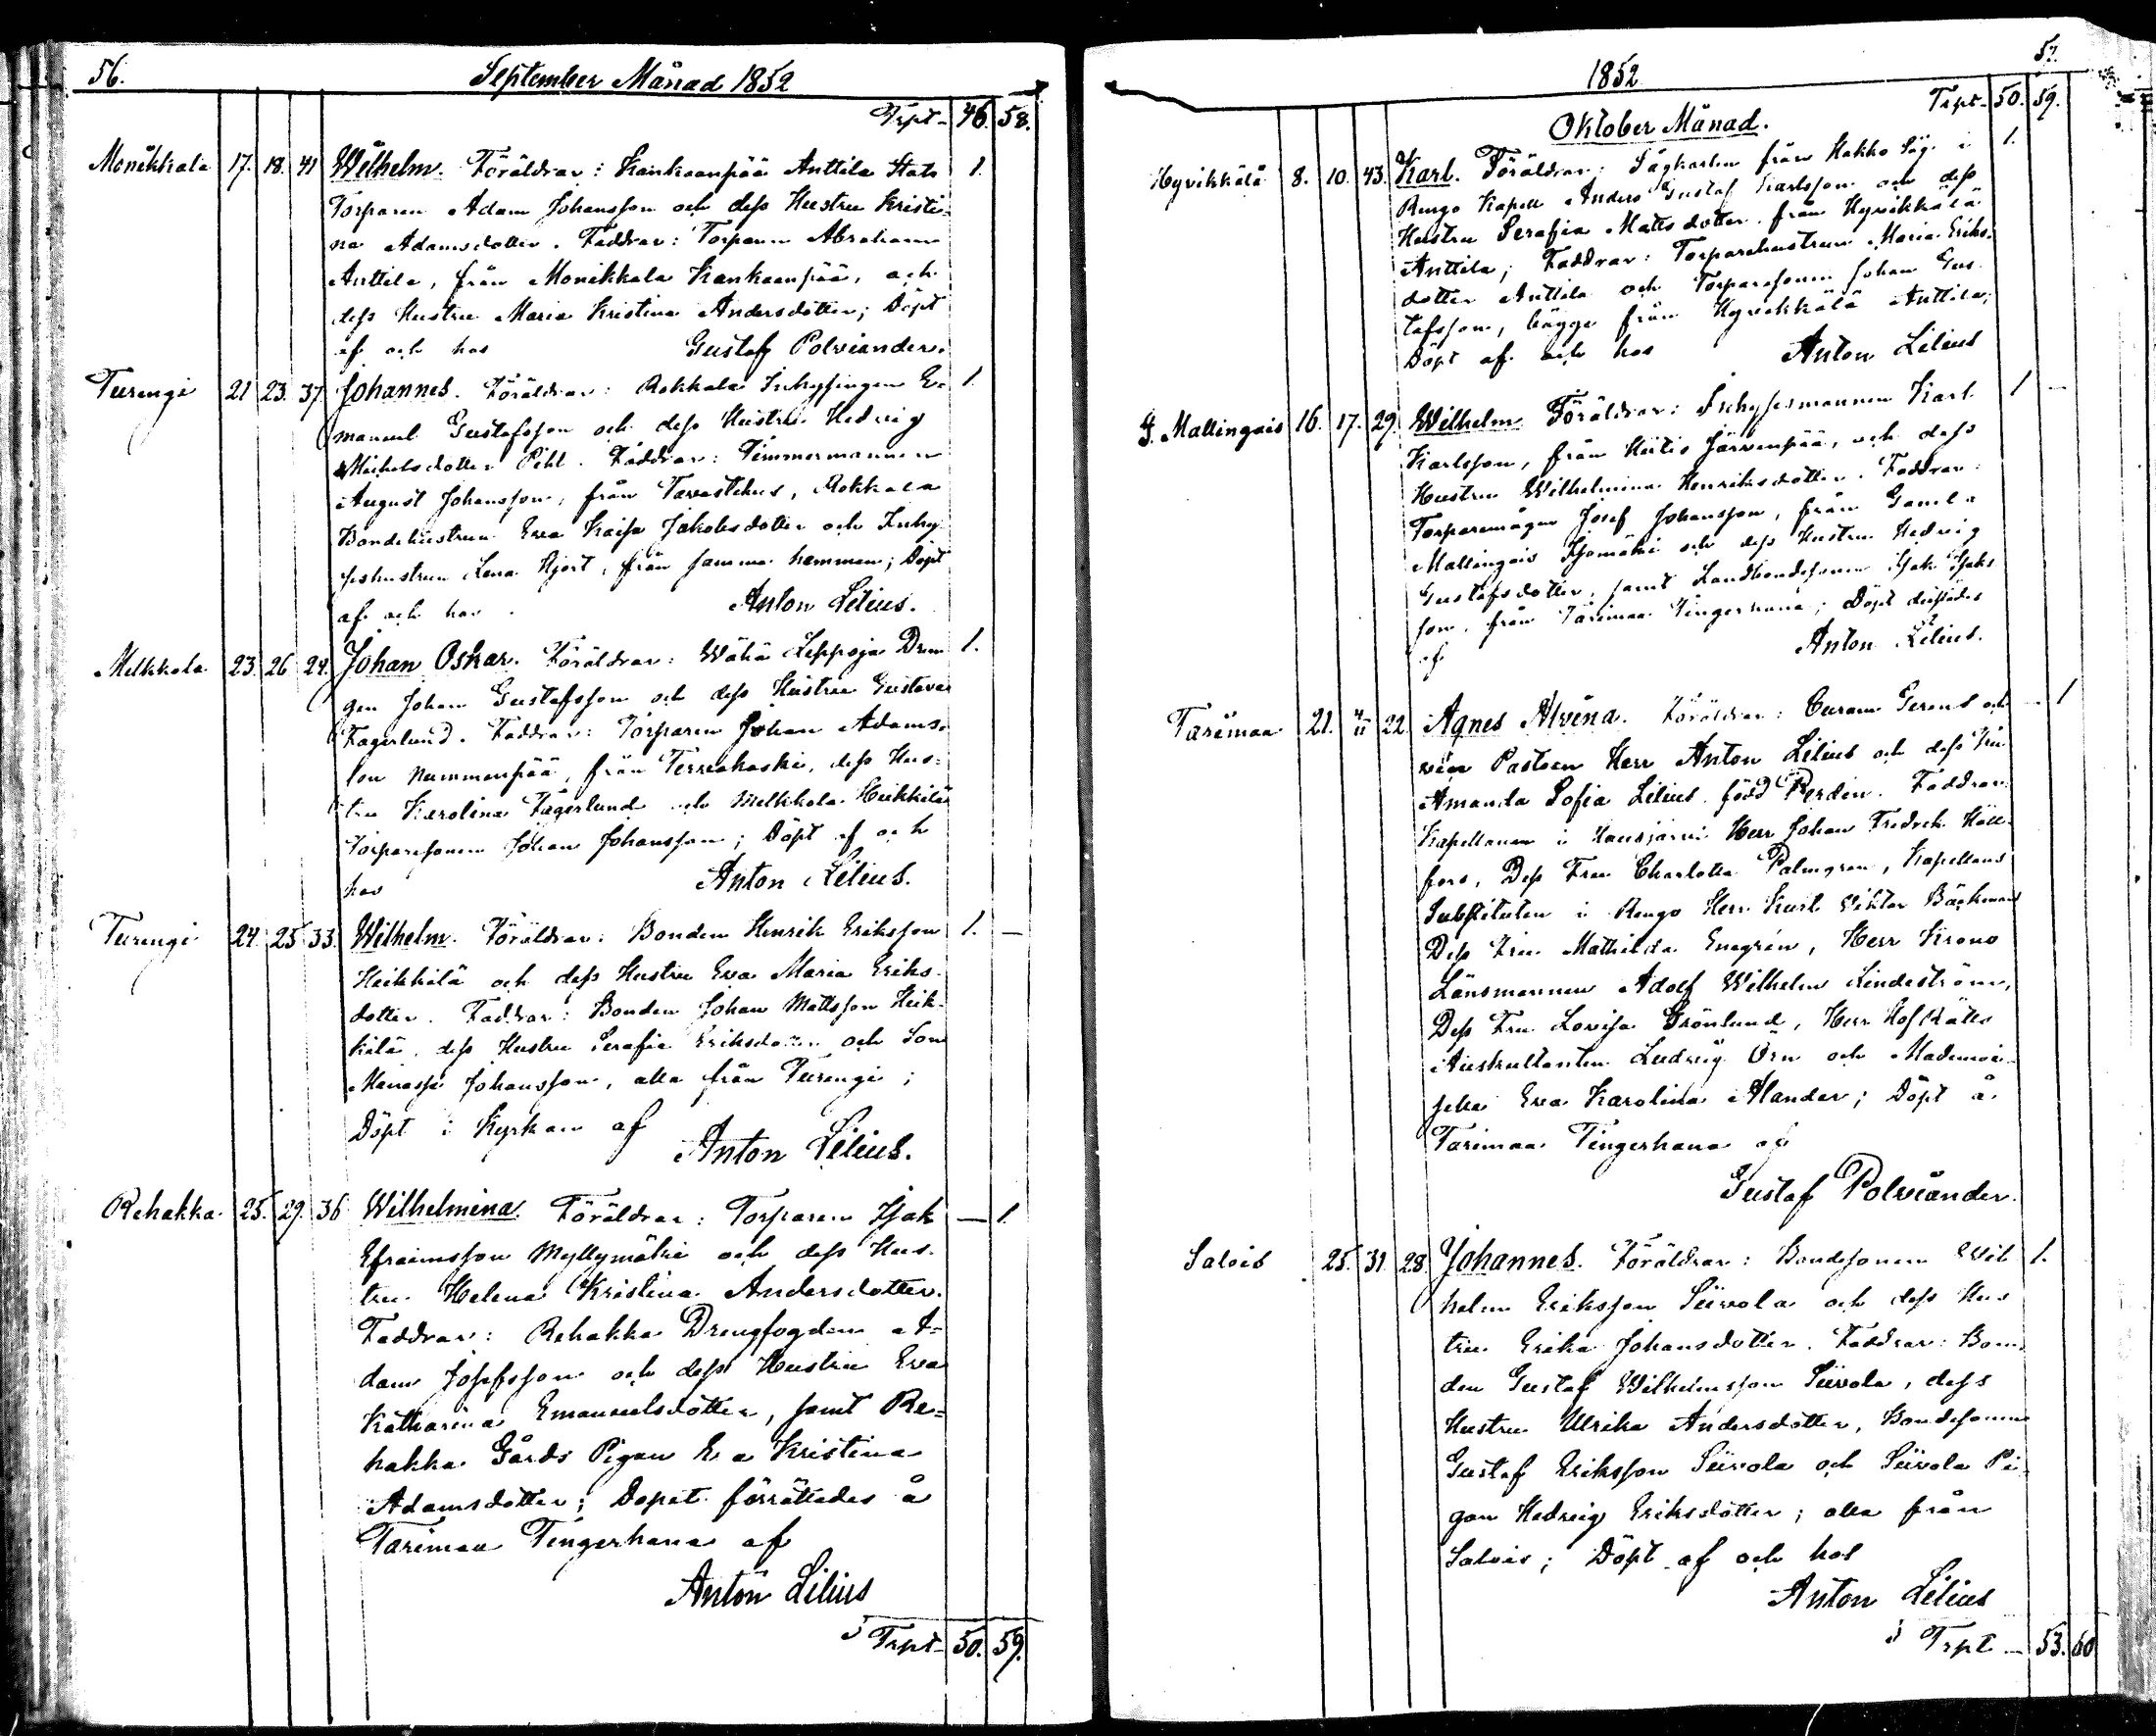 56.
September Månad 1852
Trpt - 46. 58.
Monikkala 17. 18. 41 Wilhelm. Föräldrar: Kankaanpää Anttila Stats 1.
Torparen Adam Johansson och dess Hustru Kristi-
na Adamsdotter. Faddrar: Torparen Abraham
Anttila, från Monikkala Kankaanpää, och
dess Hustru Maria Kristina Andersdotter; Döpt
af och hos Gustaf Polviander.
Turengi 21 23. 37 Johannes. Föräldrar: Rekkala Inhysingen E- 1.
manuel Gustafsson och dess Hustru Hedvig
Michelsdotter Pihl. Faddrar: Timmermannen
August Johansson, från Tavastehus, Rekkala
Bondehustrun Eva Kaisa Jakobsdotter och Inhy-
seshustrun Lena Hjort, från samma hemman; Döpt
af och hos Anton Lilius.
Melkkola 23. 26 24. Johan Oskar. Föräldrar: Wähä Leppoja Dren 1.
gen Johan Gustafsson och dess Hustru Gustava
Fagerlund. Faddrar: Torparen Johan Adams-
son Nummenpää, från Tervakoski, dess Hus-
tru Karolina Fagerlund och Melkkola Heikkilä
Torparesonen Johan Johansson; Döpt af och
hos Anton Lilius.
Turengi 24. 25 33. Wilhelm. Föräldrar: Bonden Henrik Eriksson 1. —
Heikkilä och dess Hustru Eva Maria Eriks-
dotter. Faddrar: Bonden Johan Mattsson Heik-
kilä, dess Hustru Serafia Eriksdotter och Son
Manasse Johansson, alla från Turengi;
Döpt i Kyrkan af Anton Lilius.
Rehakka 25. 29. 36 Wilhelmina. Föräldrar: Torparen Isak — 1.
Efraimsson Myllymäki och dess Hus-
tru Helena Kristina Andersdotter.
Faddrar: Rehakka Drengfogden A-
dam Josefsson och dess Hustru Eva
Katharina Emanuelsdotter, samt Re-
hakka Gårds Pigan Eva Kristina
Adamsdotter; Dopet förrättades å
Tarimaa Tingerhana af
Anton Lilius
Trpt - 50. 59.
57.
1852
Trpt - 50. 59.
Oktober Månad.
Hyvikkälä 8. 10. 43. Karl. Föräldrar: Sågkarlen från Hakko Såg i 1.
Rengo Kapell Anders Gustaf Karlsson och dess
Hustru Serafia Mattsdotter från Hyvikkälä
Anttila; Faddrar: Torparehustrun Maria Eriks-
dotter Anttila och Torparesonen Johan Gus-
tafsson, bägge från Hyvikkälä Anttila;
Döpt af och hos Anton Lilius
G. Mallingais 16. 17. 29. Wilhelm Föräldrar: Inhysesmannen Karl 1 —
Karlsson, från Hiitis Järvenpää, och dess
Hustru Wilhelmina Henriksdotter. Faddrar:
Torparemågen Josef Johansson, från Gamla
Mallingais Isomäki och dess Hustru Hedvig
Gustafsdotter, samt Landbondesonen Isak Isaks
son, från Tarimaa Tingerhana; Döpt derstädes
af Anton Lilius.
Tarimaa 21. 4/11 22. Agnes Alvina. Föräldrar: Curam Gerens och — 1
vice Pastorn Herr Anton Lilius och dess Fru
Amanda Sofia Lilius född Perdén. Faddrar:
Kapellanen i Hausjärvi Herr Johan Fredrik Häll-
fors, Dess Fru Charlotta Palmgren, Kapellans
Substituten i Rengo Herr Karl Viktor Bäckman
Dess Fru Mathilda Enegrén, Herr Krono
Länsmannen Adolf Wilhelm Lindeström,
Dess Fru Lovisa Grönlund, Herr HofRätts
Auskultanten Ludvig Örn och Mademoi-
selle Eva Karolina Alander; Döpt å
Tarimaa Tingerhana af
Gustaf Polviander.
Salois 25. 31. 28. Johannes. Föräldrar: Bondesonen Wil 1.
helm Eriksson Siivola och dess Hus
tru Erika Johansdotter. Faddrar: Bon-
den Gustaf Wilhelmsson Siivola, dess
Hustru Ulrika Andersdotter, Bondesonen
Gustaf Eriksson Siivola och Siivola Pi-
gan Hedvig Eriksdotter; alla från
Salois; Döpt af och hos
Anton Lilius
Trpt - 53. 60